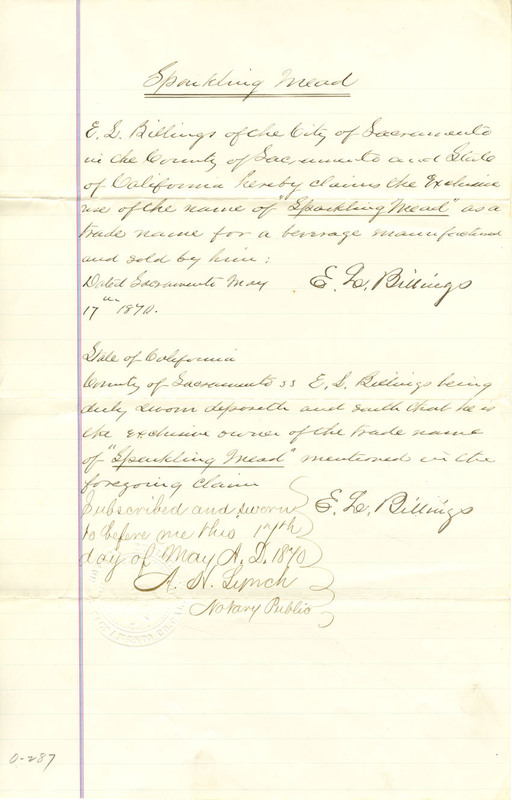 Sparkling Mead
E. L. Billings of the City of Sacramento
in the County of Sacramento and State
of California hereby claims the Exclusive
use of the name of "Sparkling Mead" as a
trade name for a beverage manufactured
and sold by him:
Dated Sacramento May
17th 1870.
E. L. Billings
State of California
County of Sacramento ss E. L. Billings being
duly sworn deposeth and saith that he is
the exclusive owner of the trade name
of "Sparkling Mead" mentioned in the
foregoing claim
E. L. Billings
Subscribed and sworn
to before me this 17th
day of May A. D. 1870
A. H. Lynch
Notary Public
0-287